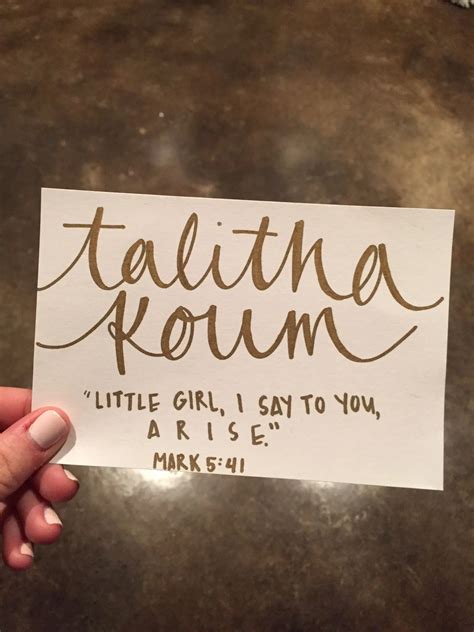 talitha
koum
"LITTLE GIRL, I SAY TO YOU,
ARISE."
MARK 5:41